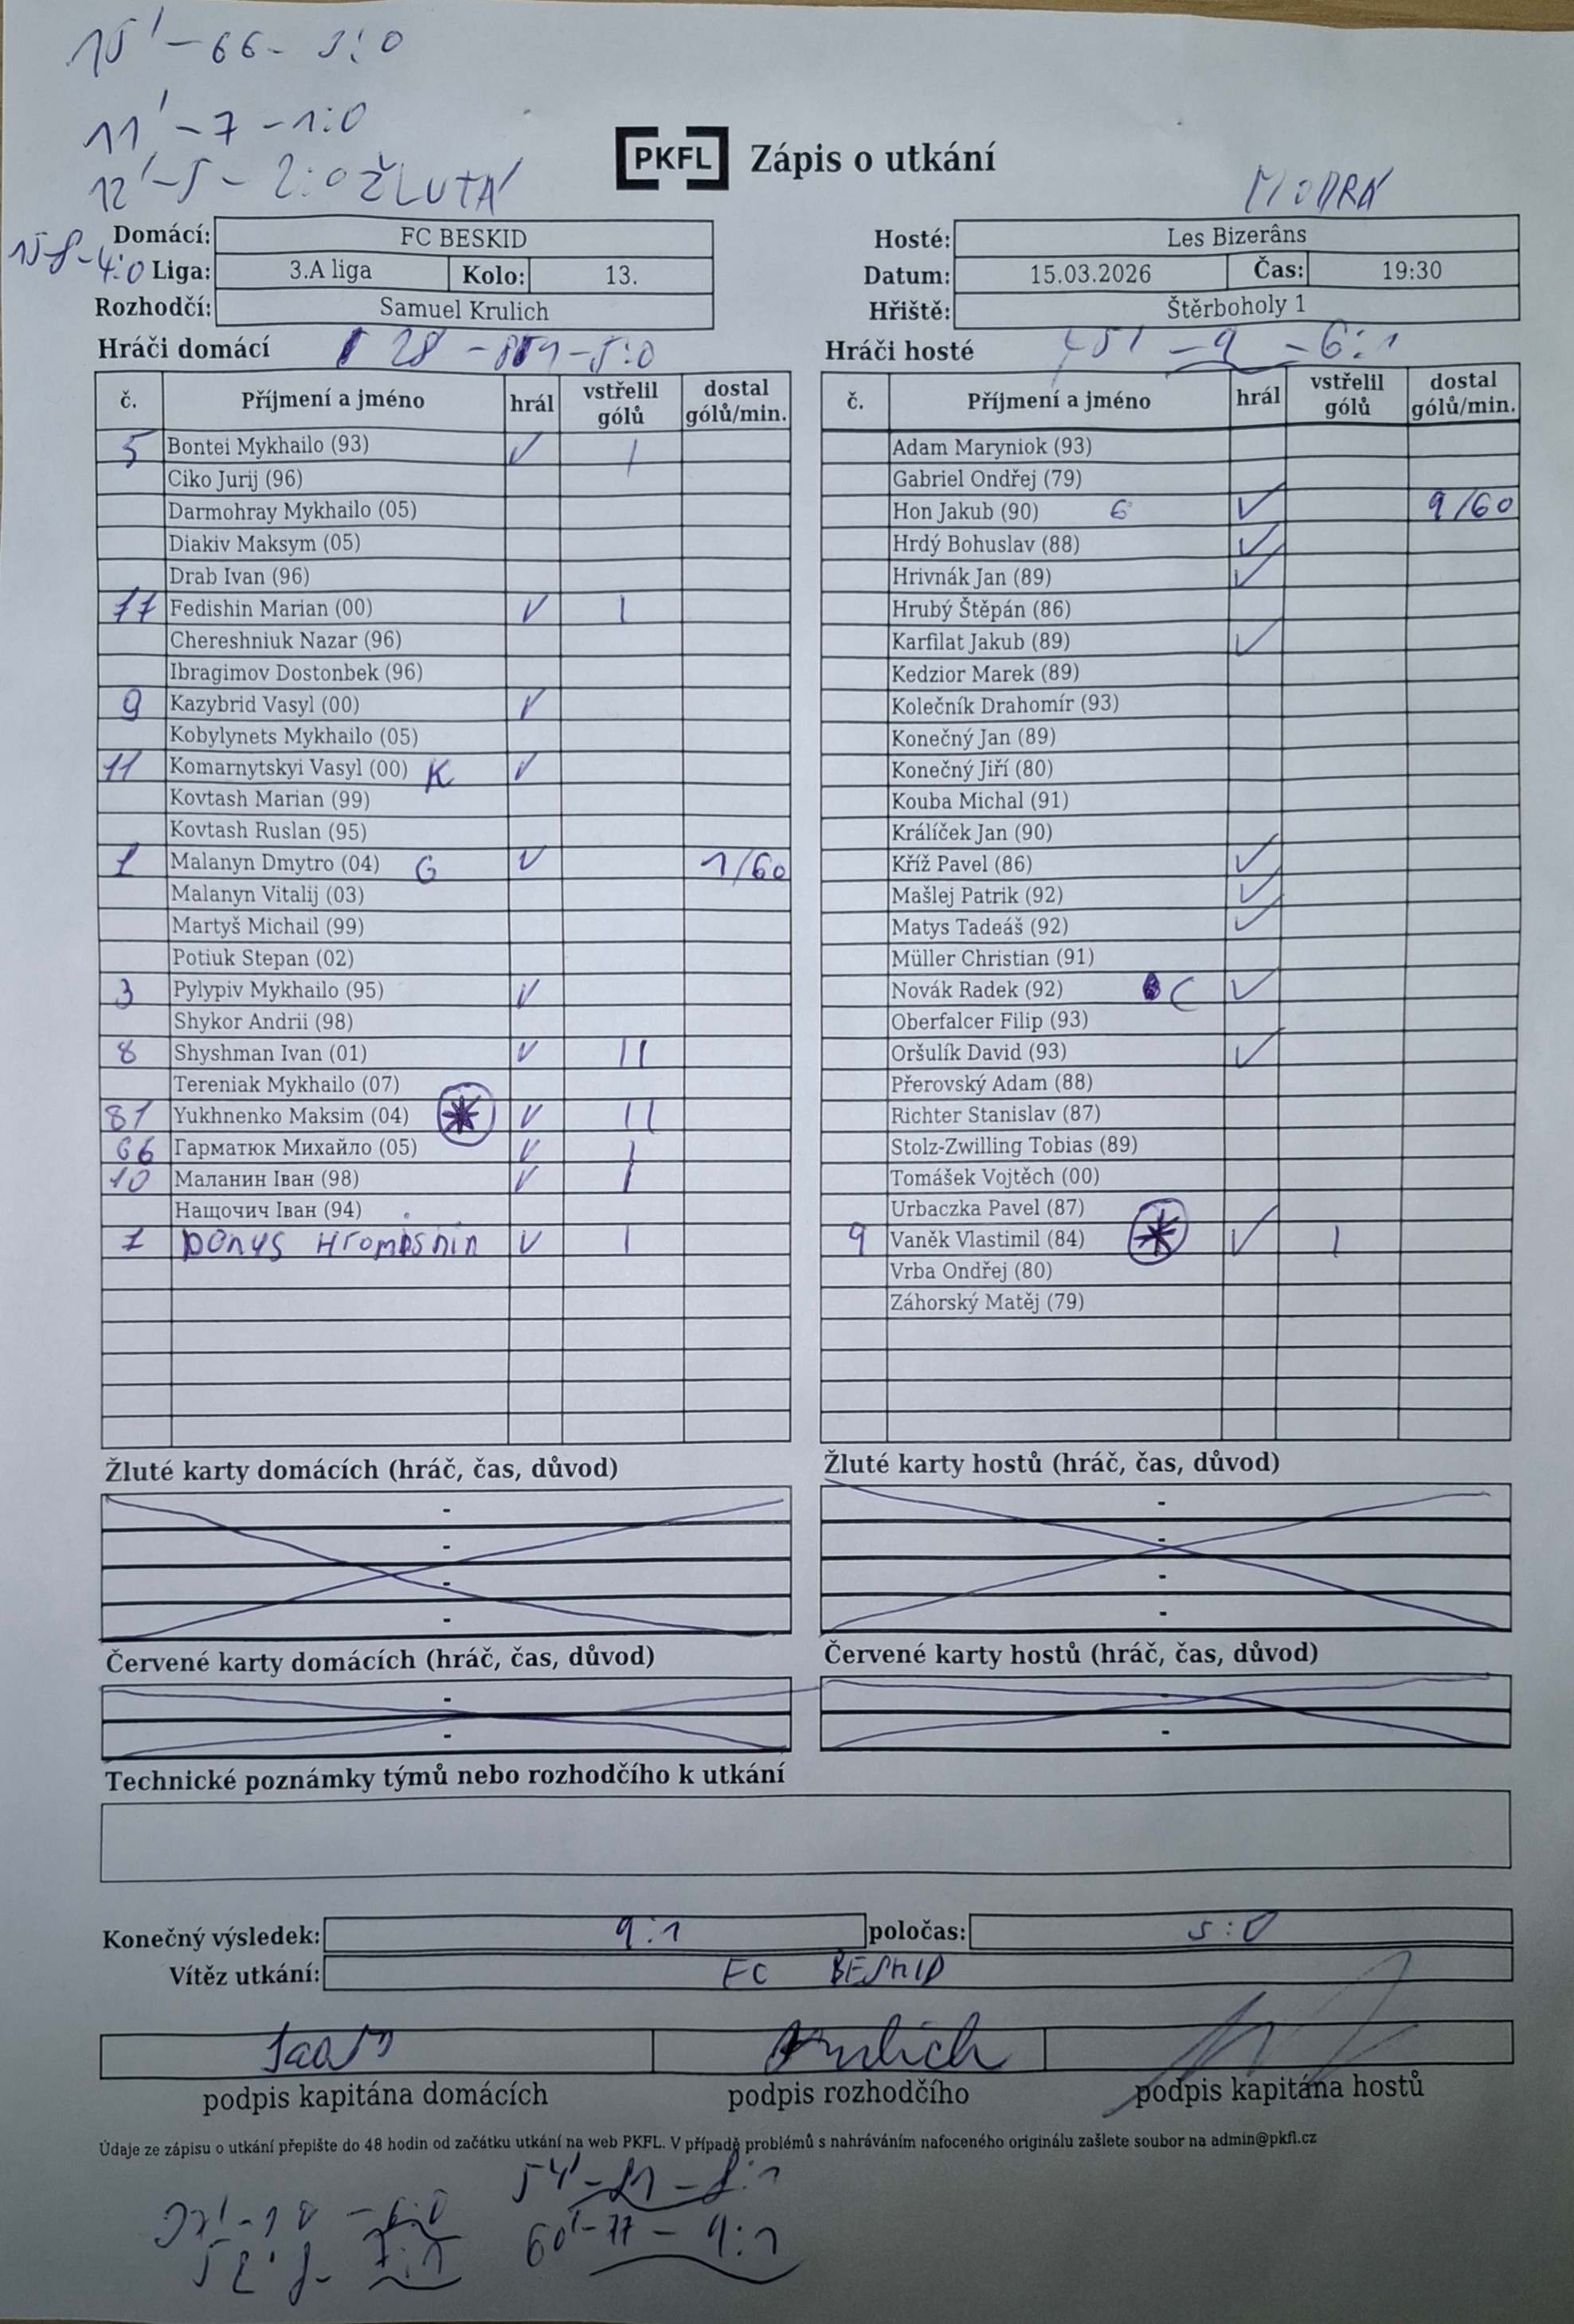 15' - 66 - 3:0
11' - 7 - 1:0
12' - 5 - 2:0 ŽLUTÁ
PKFL Zápis o utkání
MODRÁ
Domácí: FC BESKID Hosté: Les Bizerâns
15 - 8 - 4:0
Liga: 3.A liga Kolo: 13. Datum: 15.03.2026 Čas: 19:30
Rozhodčí: Samuel Krulich Hřiště: Štěrboholy 1
Hráči domácí 28 - 81 - 5:0
Hráči hosté 45' - 9 - 6:1
č. Příjmení a jméno hrál vstřelil gólů dostal gólů/min.
5 Bontei Mykhailo (93) ✓ |
Ciko Jurij (96)
Darmohray Mykhailo (05)
Diakiv Maksym (05)
Drab Ivan (96)
77 Fedishin Marian (00) ✓ |
Chereshniuk Nazar (96)
Ibragimov Dostonbek (96)
9 Kazybrid Vasyl (00) ✓
Kobylynets Mykhailo (05)
11 Komarnytskyi Vasyl (00) K ✓
Kovtash Marian (99)
Kovtash Ruslan (95)
1 Malanyn Dmytro (04) G ✓ 1/60
Malanyn Vitalij (03)
Martyš Michail (99)
Potiuk Stepan (02)
3 Pylypiv Mykhailo (95) ✓
Shykor Andrii (98)
8 Shyshman Ivan (01) ✓ ||
Tereniak Mykhailo (07)
81 Yukhnenko Maksim (04) * ✓ ||
66 Гарматюк Михайло (05) ✓ |
10 Маланин Іван (98) ✓ |
Нащочич Іван (94)
7 Denys Hromashin ✓ |
č. Příjmení a jméno hrál vstřelil gólů dostal gólů/min.
Adam Maryniok (93)
Gabriel Ondřej (79)
Hon Jakub (90) G ✓ 9/60
Hrdý Bohuslav (88) ✓
Hrivnák Jan (89) ✓
Hrubý Štěpán (86)
Karfilat Jakub (89) ✓
Kedzior Marek (89)
Kolečník Drahomír (93)
Konečný Jan (89)
Konečný Jiří (80)
Kouba Michal (91)
Králíček Jan (90)
Kříž Pavel (86) ✓
Mašlej Patrik (92) ✓
Matys Tadeáš (92) ✓
Müller Christian (91)
Novák Radek (92) C ✓
Oberfalcer Filip (93)
Oršulík David (93) ✓
Přerovský Adam (88)
Richter Stanislav (87)
Stolz-Zwilling Tobias (89)
Tomášek Vojtěch (00)
Urbaczka Pavel (87)
9 Vaněk Vlastimil (84) * ✓ |
Vrba Ondřej (80)
Záhorský Matěj (79)
Žluté karty domácích (hráč, čas, důvod)
-
-
-
-
Žluté karty hostů (hráč, čas, důvod)
-
-
-
-
Červené karty domácích (hráč, čas, důvod)
-
-
Červené karty hostů (hráč, čas, důvod)
-
-
Technické poznámky týmů nebo rozhodčího k utkání
Konečný výsledek: 9:1 poločas: 5:0
Vítěz utkání: FC BESKID
Krulich
podpis kapitána domácích podpis rozhodčího podpis kapitána hostů
Údaje ze zápisu o utkání přepište do 48 hodin od začátku utkání na web PKFL. V případě problémů s nahráváním nafoceného originálu zašlete soubor na admin@pkfl.cz
54' - 81 - 8:1
- 10 - 6:0
60' - 77 - 9:1
52' 8 - 7:1